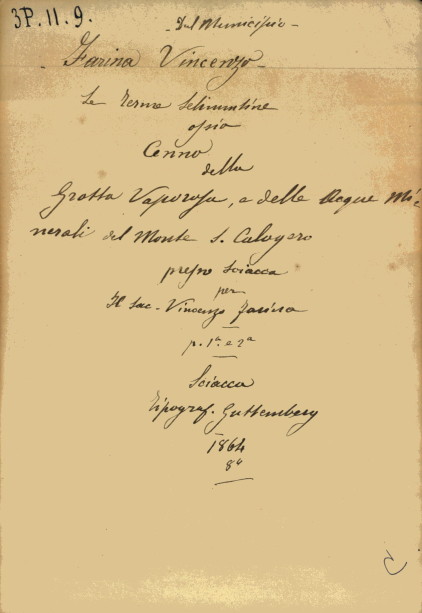 3P. 11. 9.
- Dal Municipio -
- Farina Vincenzo -
Le Terme Selinuntine
ossia
Cenno
della
Grotta Vaporosa, e delle Acque Mi=
nerali del Monte S. Calogero
presso Sciacca
per
Il Sac. Vincenzo Farina
p. 1ª e 2ª
Sciacca
Tipograf. Guttemberg
1864
8º